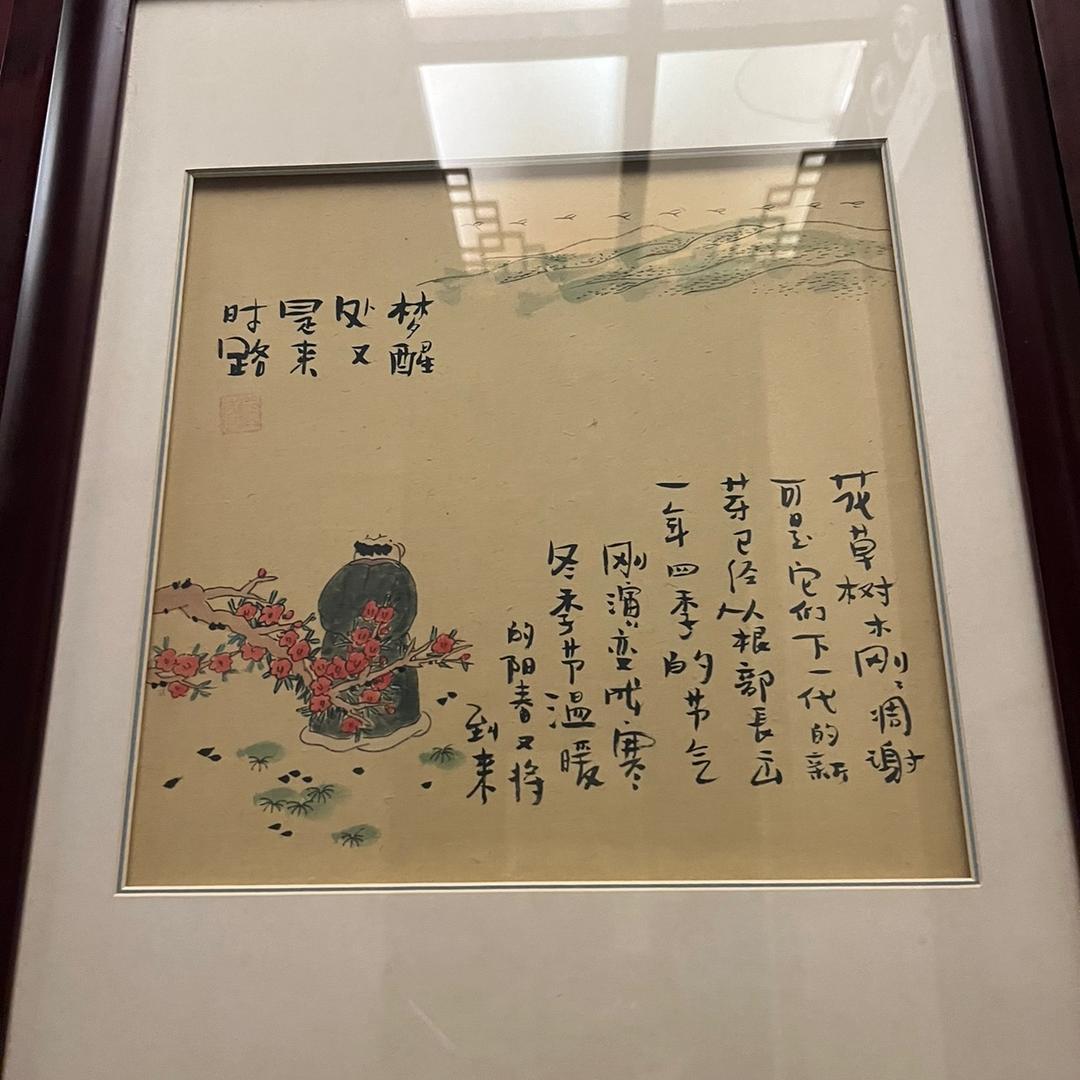 梦醒
处又
是来
时路
花草树木刚々凋谢
可是它们下一代的新
芽已经从根部長出
一年四季的节气
刚演变成寒
冬季节温暖
的阳春又将
到来